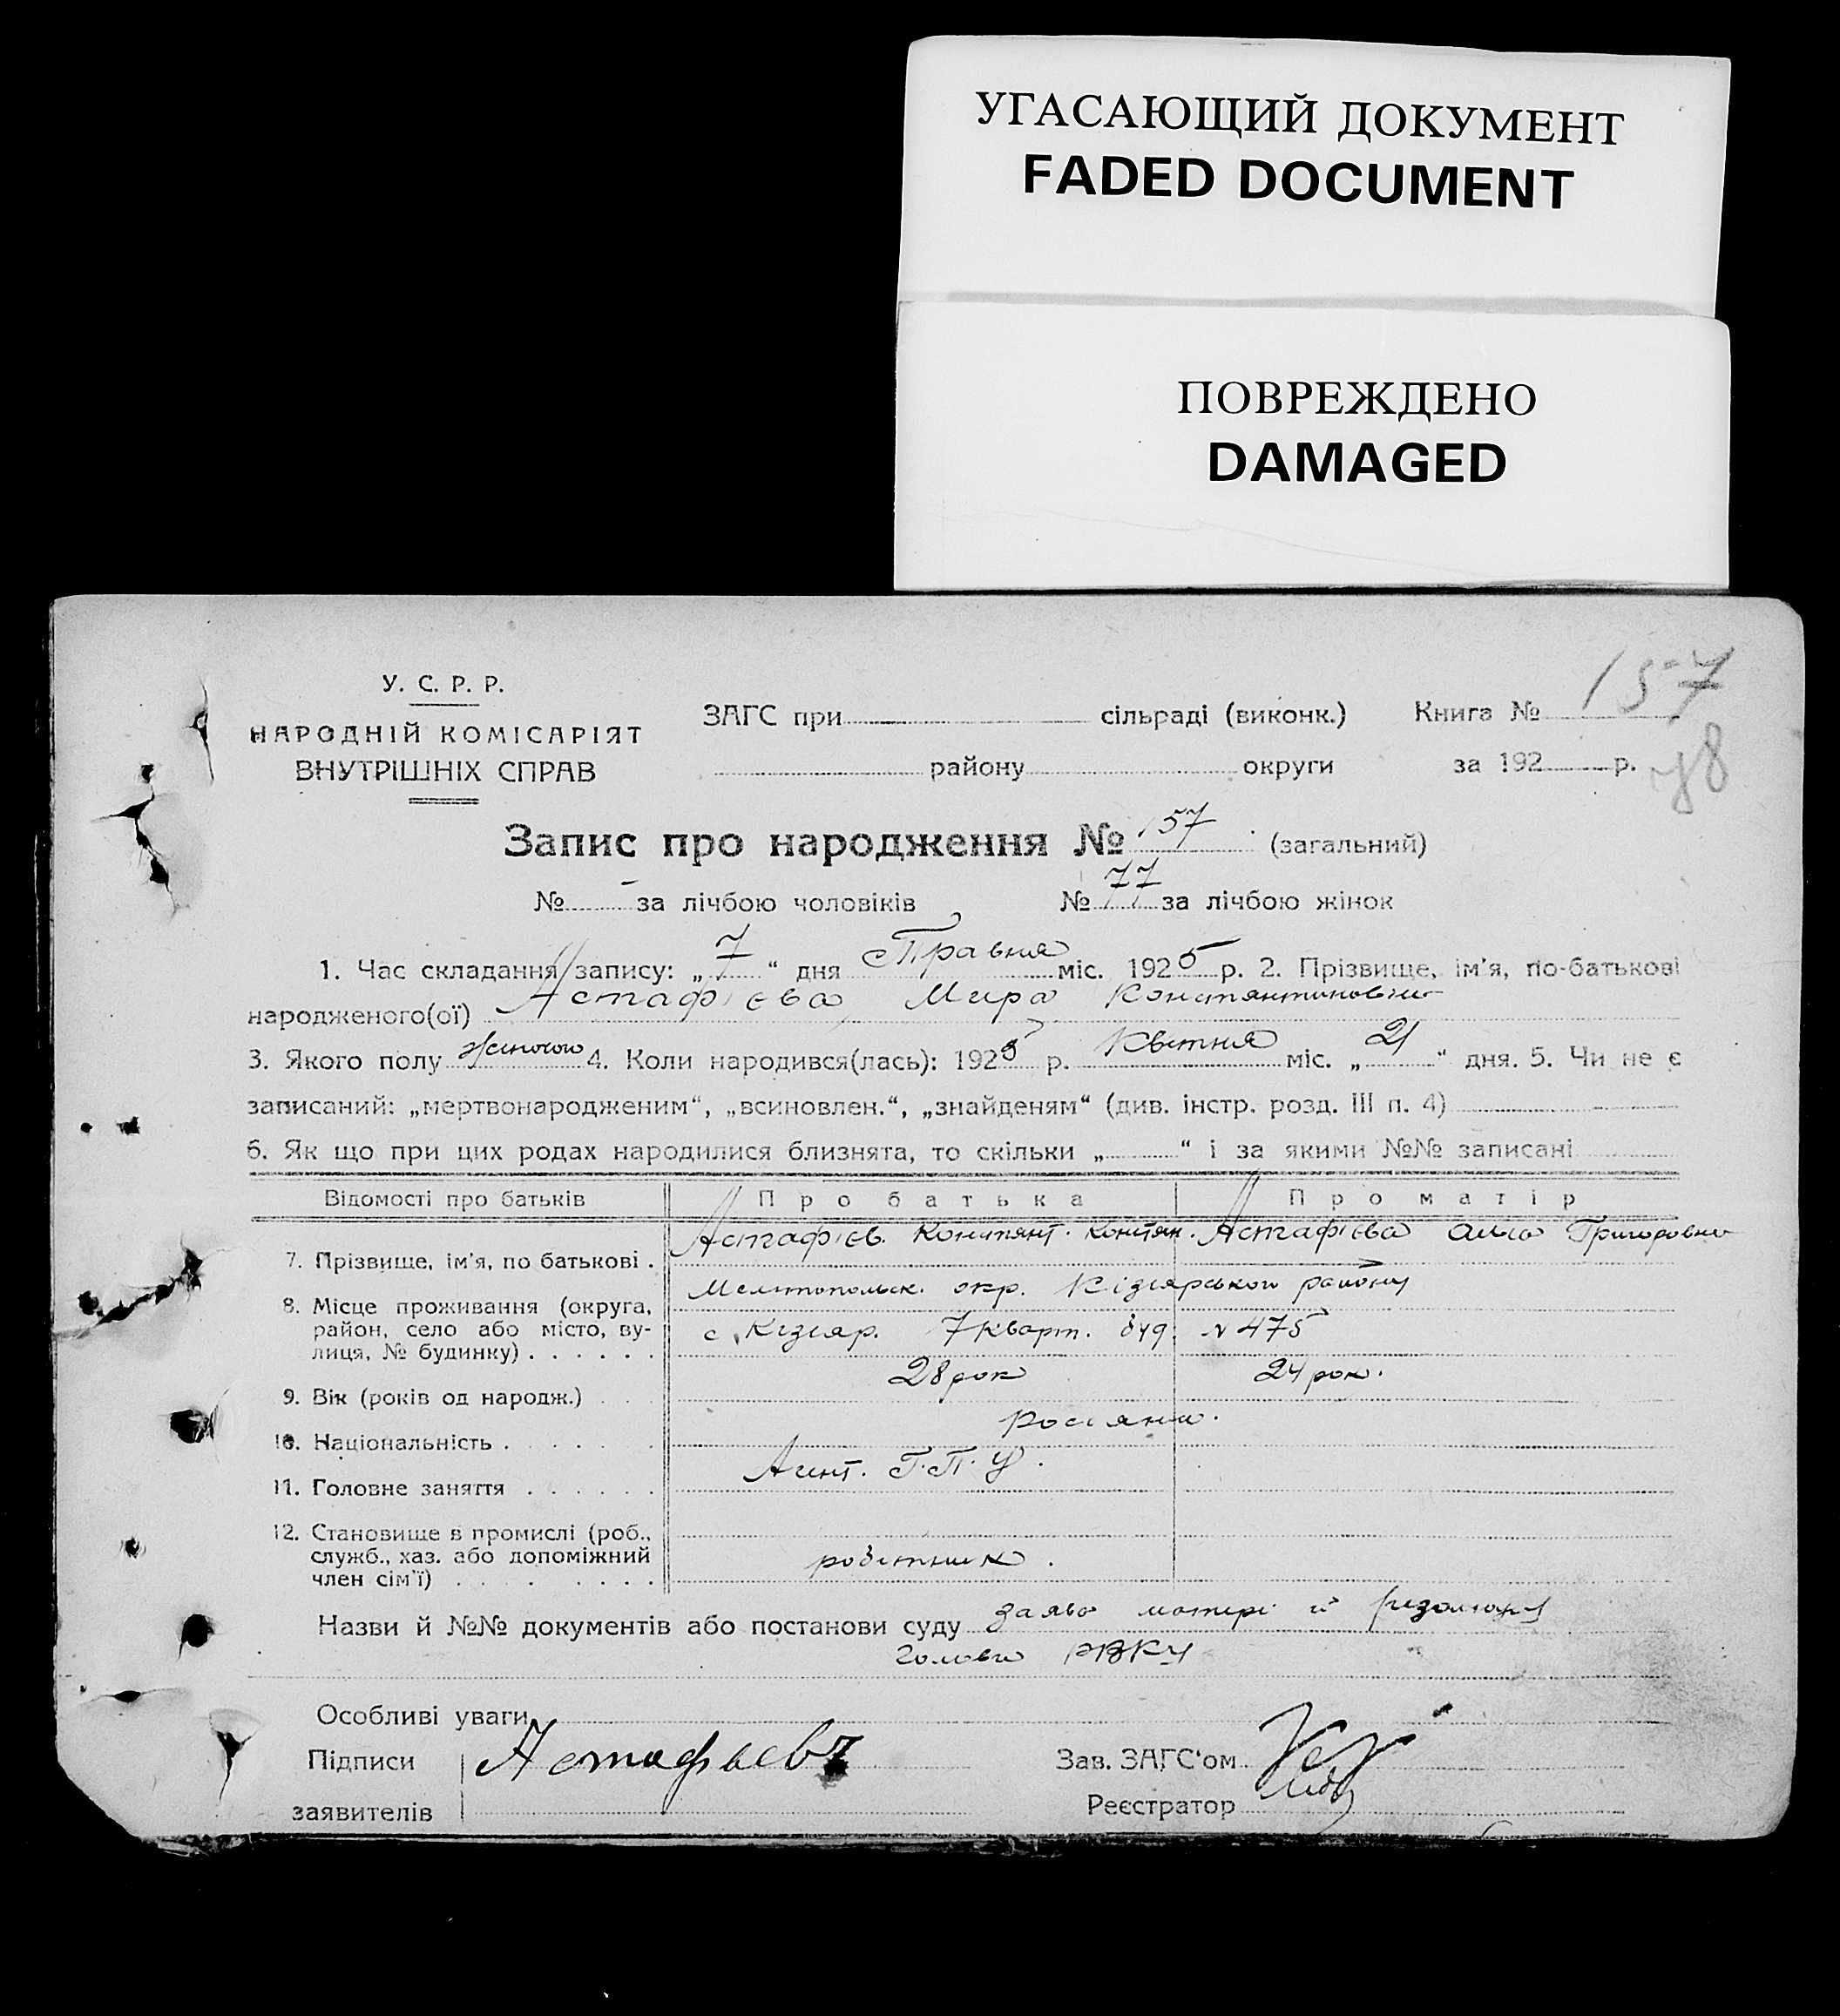 УГАСАЮЩИЙ ДОКУМЕНТ
FADED DOCUMENT
ПОВРЕЖДЕНО
DAMAGED
У. С. Р. Р.
НАРОДНІЙ КОМІСАРІЯТ
ВНУТРІШНІХ СПРАВ
ЗАГС при сільраді (виконк.) Книга № 157
району округи за 192 р. 78
Запис про народження № 157 (загальний)
№ - за лічбою чоловіків № 77 за лічбою жінок
1. Час складання запису: „7“ дня Травня міс. 1925 р. 2. Прізвище, ім'я, по-батькові
народженого(ої) Астафієва Мира Констянтиновна
3. Якого полу жіночого 4. Коли народився(лась): 1925 р. Квітня міс. „21“ дня. 5. Чи не є
записаний: „мертвонародженим“, „всиновлен.“, „знайденям“ (див. інстр. розд. III п. 4)
6. Як що при цих родах народилися близнята, то скільки „ “ і за якими №№ записані
Відомості про батьків Про батька Про матір
7. Прізвище, ім'я, по батькові . Астафієв. Констянт. Констян. Астафієва Григоровна
8. Місце проживання (округа, Мелітопольск. окр. Кізіярського району
район, село або місто, ву- с. Кізіяр. 7 кварт. буд. № 475
лиця, № будинку) . . . . . .
9. Вік (років од народж.) . . . 28 рок 24 рок.
10. Національність . . . . . . росіяни.
11. Головне заняття . . . . . . Агент. Г.П.У.
12. Становище в промислі (роб.,
служб., хаз. або допоміжний робітник.
член сім'ї) . . . . . . . .
Назви й №№ документів або постанови суду заява матері й резолюція
Голови РВКу
Особливі уваги
Підписи Астафьева Зав. ЗАГС'ом
заявителів Реєстратор